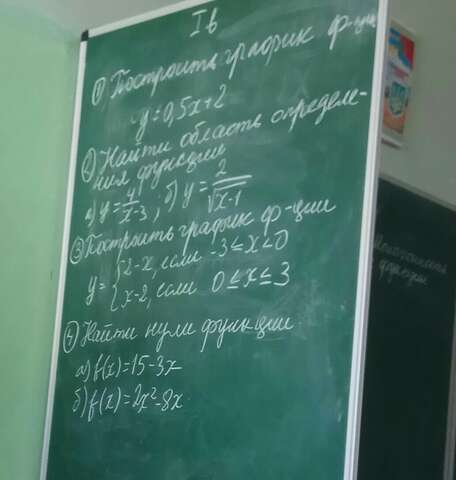 I в
① Построить график ф-ции
y = 0,5x+2
② Найти область определе-
ния функции
а) y = 4/x-3, б) y = 2/√x-1
③ Построить график ф-ции
y = { 2-x, если -3≤x<0
x-2, если 0≤x≤3
④ Найти нули функции
а) f(x)=15-3x
б) f(x)=2x²-8x
функции